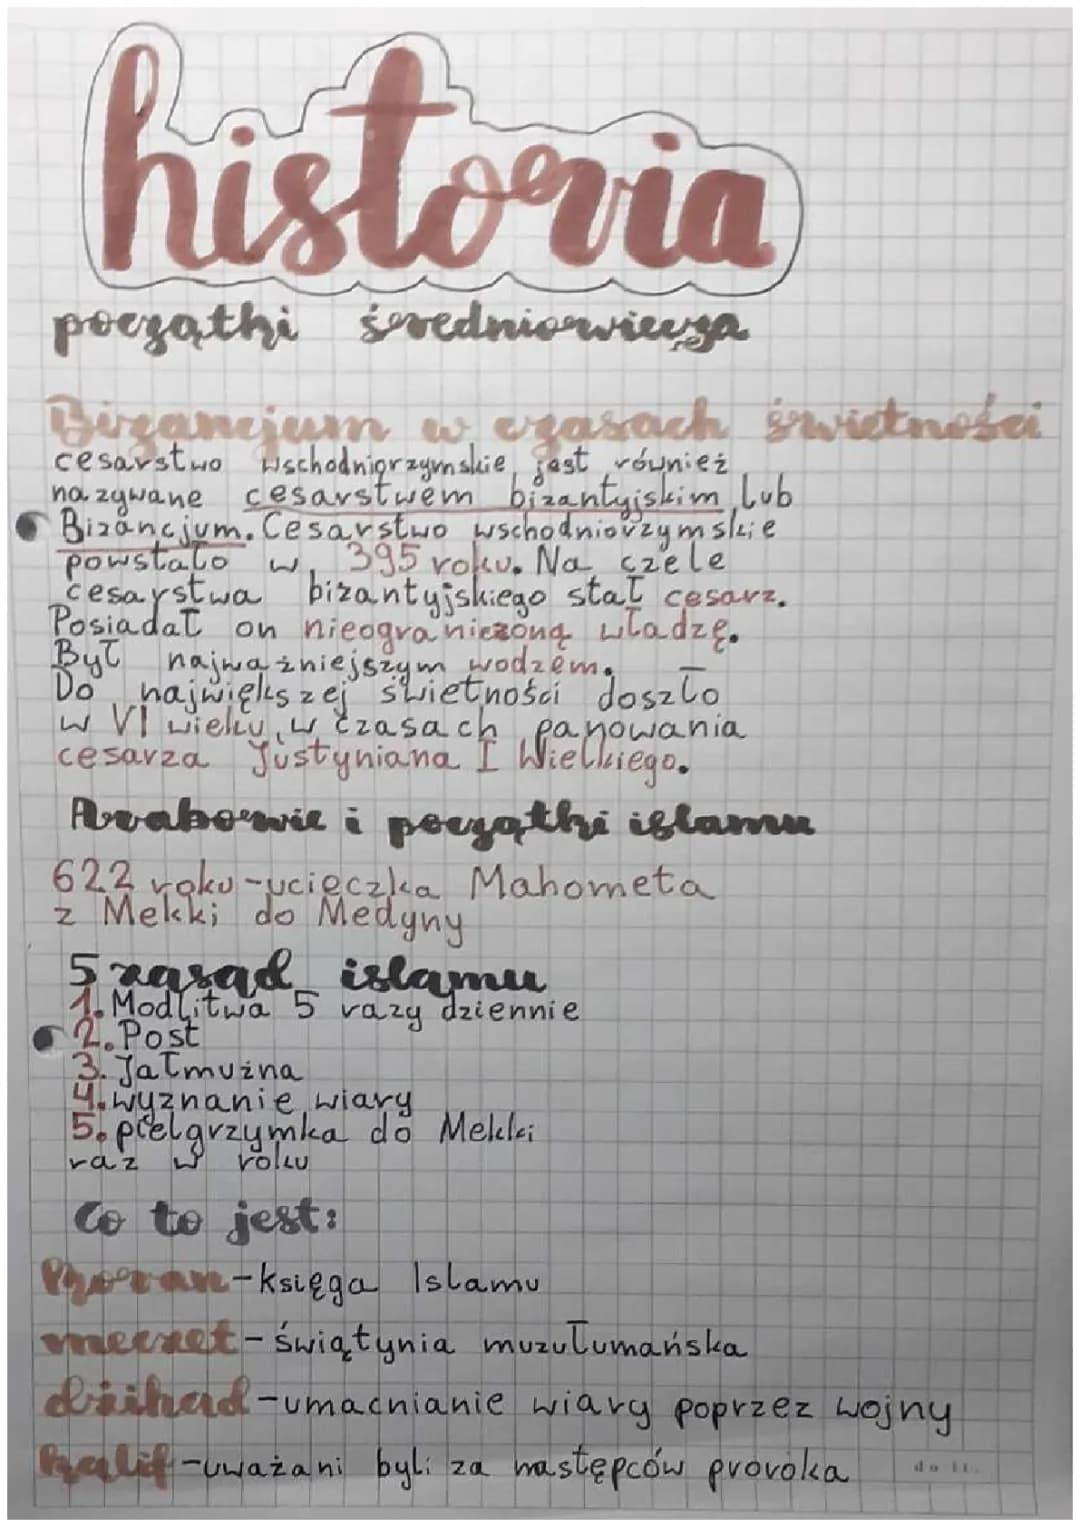 historia
początki średniowiecza
Bizancjum w czasach świetności
cesarstwo wschodniorzymskie jest również
nazywane cesarstwem bizantyjskim lub
Bizancjum. Cesarstwo wschodniorzymskie
powstało w 395 roku. Na czele
cesarstwa bizantyjskiego stał cesarz.
Posiadał on nieograniczoną władzę.
Był najważniejszym wodzem.
Do największej świetności doszło
w VI wieku, w czasach panowania
cesarza Justyniana I Wielkiego.
Arabowie i początki islamu
622 roku - ucieczka Mahometa
z Mekki do Medyny
5 zasad islamu
1. Modlitwa 5 razy dziennie
2. Post
3. Jałmużna
4. wyznanie wiary
5. pielgrzymka do Mekki
raz w roku
Co to jest:
Koran - księga Islamu
meczet - świątynia muzułumańska
dżihad - umacnianie wiary poprzez wojny
kalif - uważani byli za następców proroka